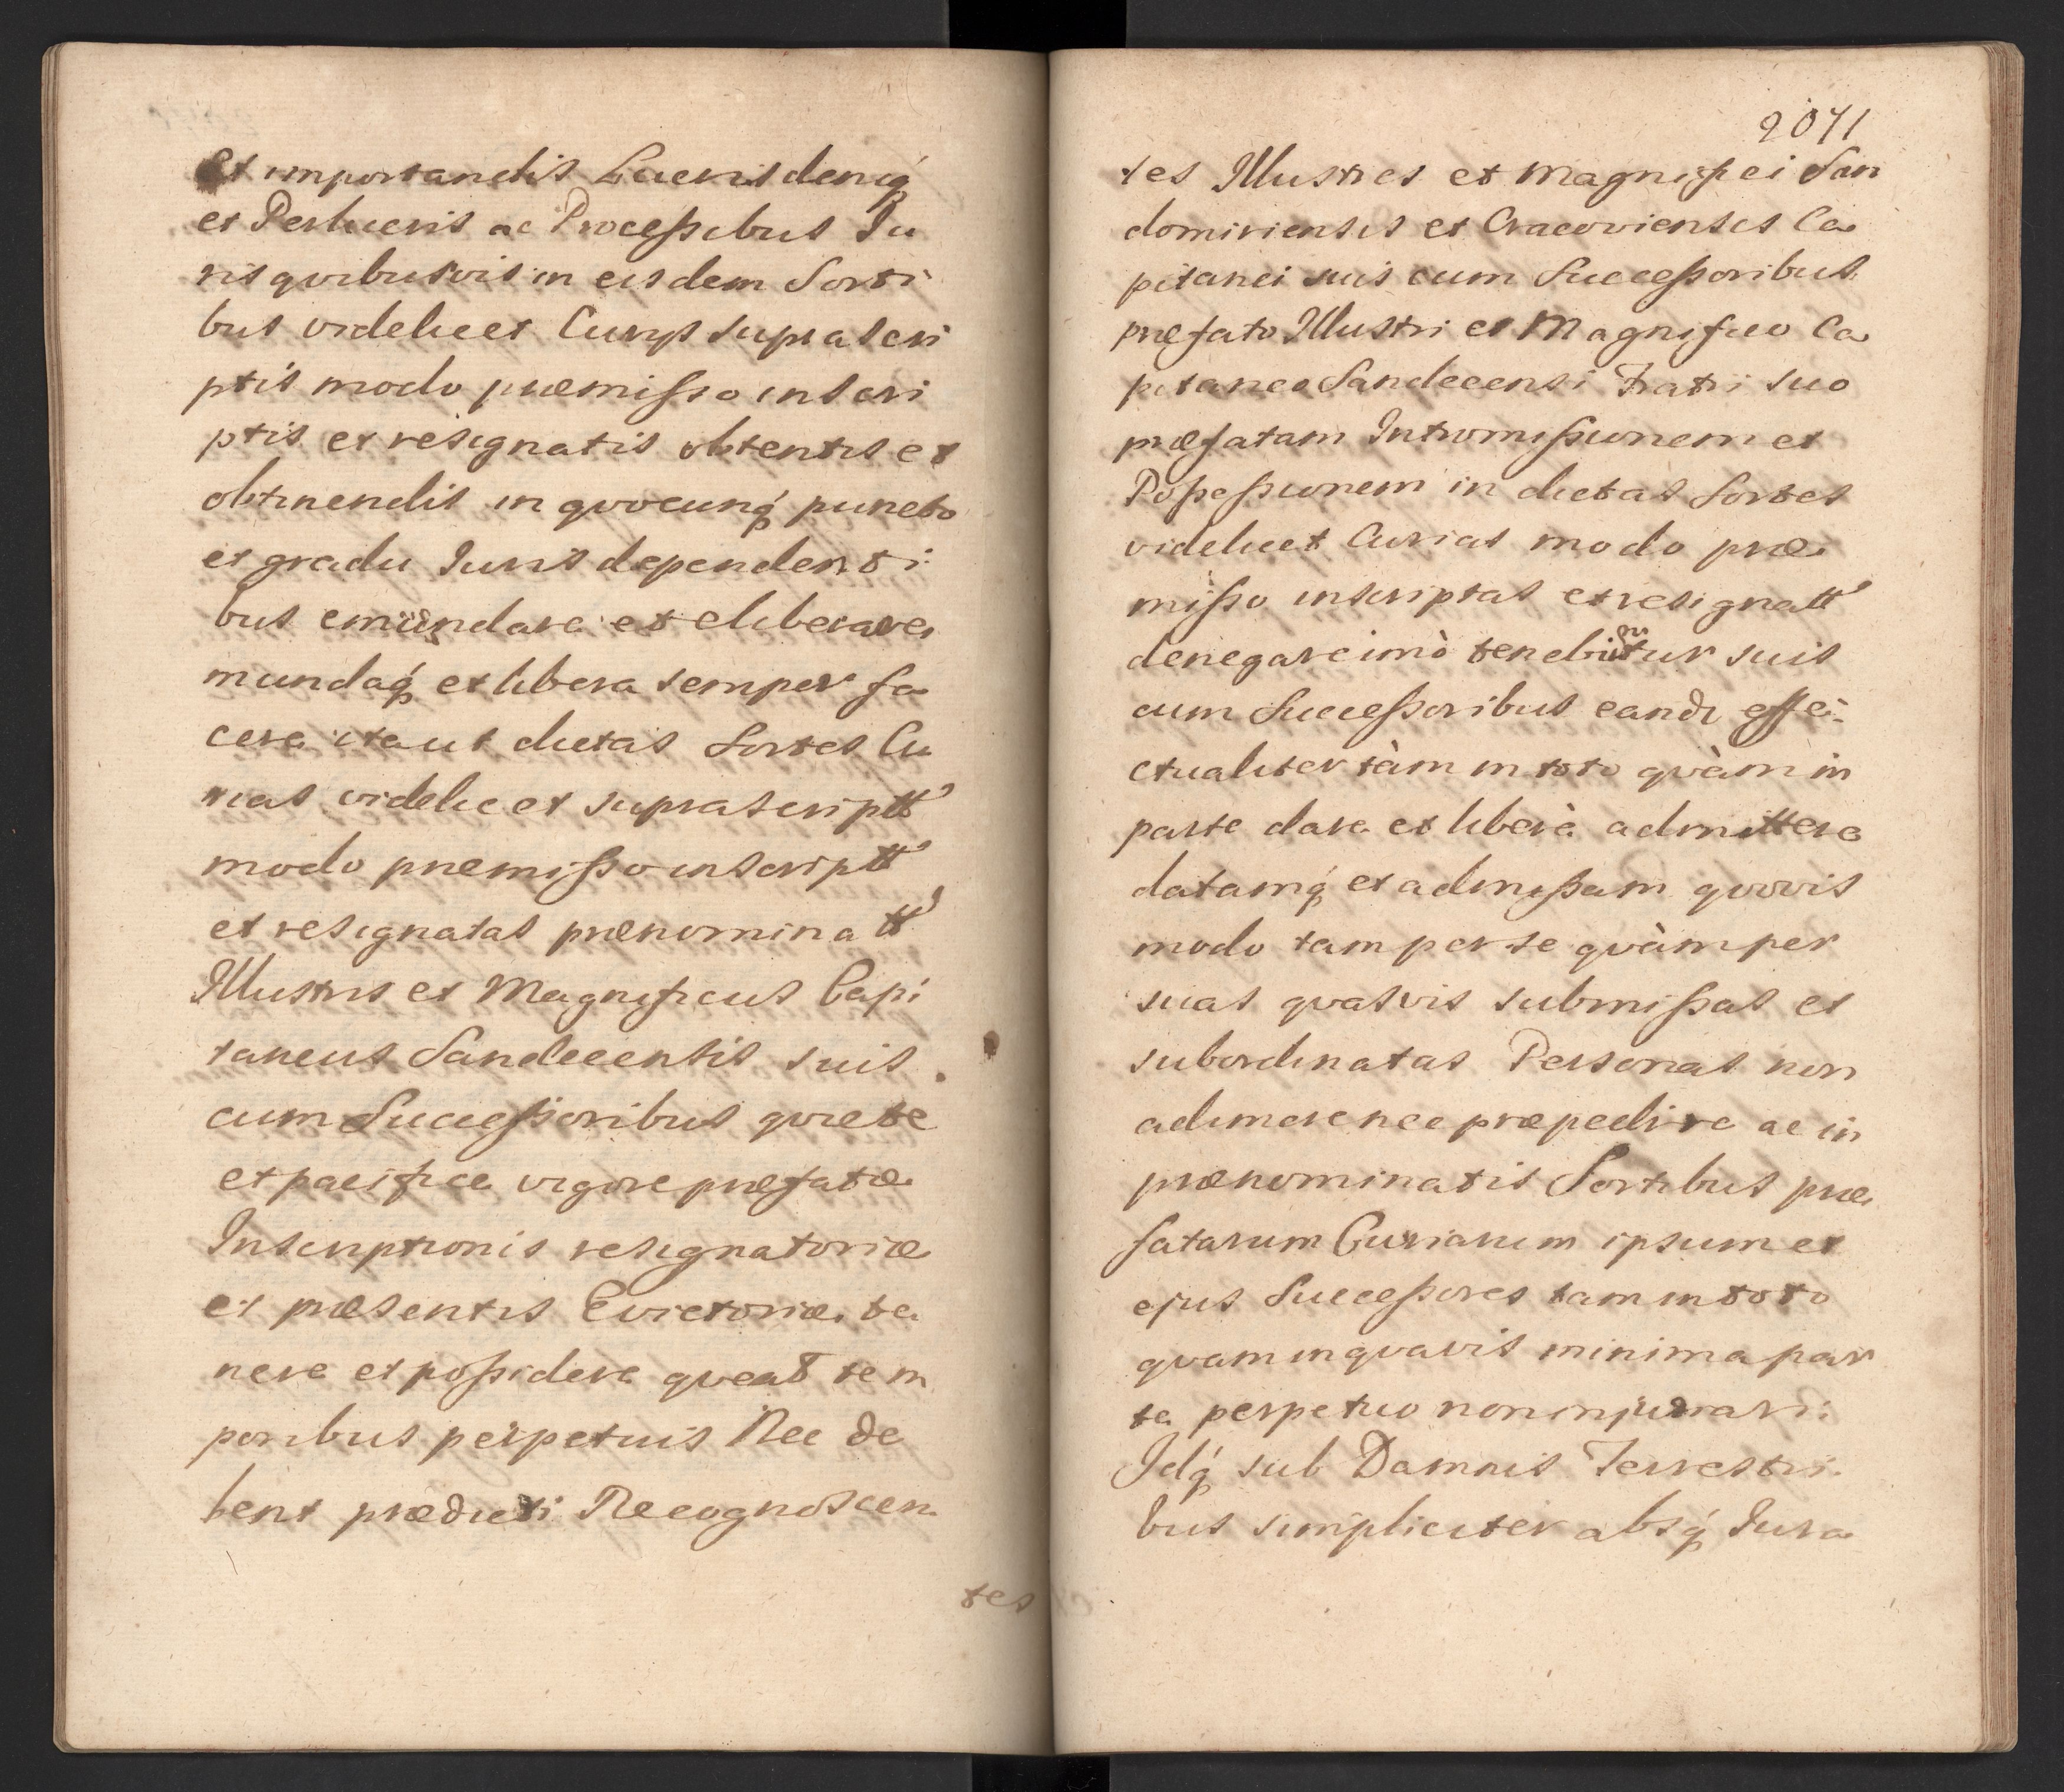 et importandis Lucris deniq́
et Perlucris ac Processibus Iu
ris qvibusvis in eisdem Sorti
bus videlicet Curijs suprascri
ptis modo præmisso inscri
ptis et resignatis obtentis et
obtinendis in qvocunq́ puncto
et gradu Iuris dependenti
bus emundare et eliberare
mundaq́ et libera semper fa
cere ita ut dictas Sortes Cu
rias videlicet suprascriptt'
modo præmisso inscriptt'
et resignatas prænominatt'
Illustris et Magnificus Capi
taneus Sandecensis suis
cum Successoribus qviete
et pacifice vigore præfatæ
Inscriptionis resignatoriæ
et præsentis Evictoriæ te
nere et possidere qveat tem
poribus perpetuis Nec de
bent prædicti Recognoscen
tes
2071
tes Illustres et Magnifici San
domiriensis et Cracoviensis Ca
pitanei suis cum Successoribus
præfato Illustri et Magnifico Ca
pitaneo Sandecensi Fratri suo
præfatam Intromissionem et
Possessionem in dictas Sortes
videlicet Curias modo præ
misso inscriptas et resignatt'
denegare imò tenebuntur suis
cum Successoribus eandē effe
ctualiter tàm in toto qvàm in
parte dare et liberè admittere
datamq́ et admissam qvovis
modo tam per se qvàm per
suas qvasvis submissas et
subordinatas Personas non
adimere nec præpedire ac in
prænominatis Sortibus præ
fatarum Curiarum ipsum et
ejus Successores tam in toto
qvam in qvavis minima par
te perpetuo non injuriari
Idq́ sub Damnis Terrestri
bus simpliciter absq́ Iura